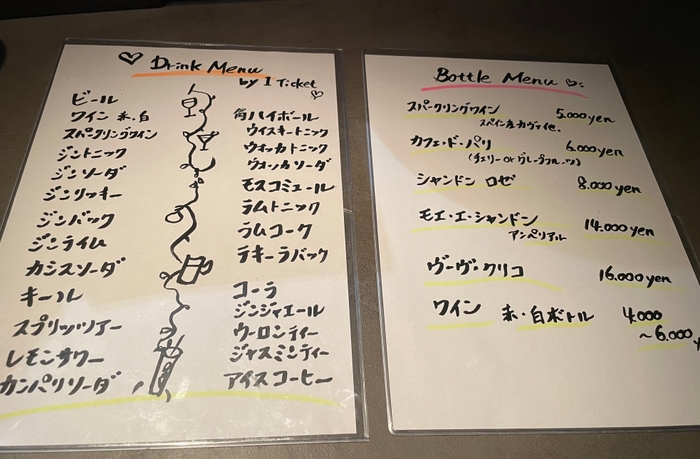 Drink Menu
by 1 Ticket
ビール
ワイン 赤・白
スパークリングワイン
ジントニック
ジンソーダ
ジンリッキー
ジンバック
ジンライム
カシスソーダ
キール
スプリッツアー
レモンサワー
カンパリソーダ
角ハイボール
ウイスキートニック
ウォッカトニック
ウォッカソーダ
モスコミュール
ラムトニック
ラムコーク
テキーラバック
コーラ
ジンジャエール
ウーロンティー
ジャスミンティー
アイスコーヒー
Bottle Menu
スパークリングワイン 5.000yen
スペイン産カヴァ他.
カフェ・ド・パリ 6.000yen
(チェリー or グレープフルーツ)
シャンドン ロゼ 8.000yen
モエ・エ・シャンドン 14.000yen
アンペリアル
ヴーヴ・クリコ 16.000yen
ワイン 赤・白ボトル 4.000
~6.000y